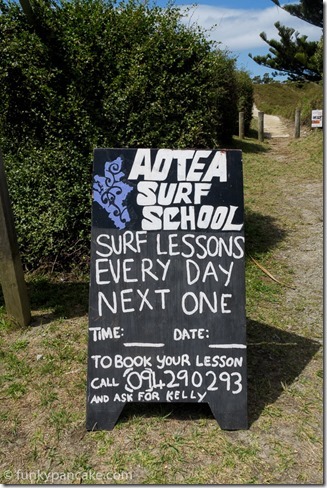 AOTEA
SURF
SCHOOL
SURF LESSONS
EVERY DAY
NEXT ONE
TIME: ___ DATE: ___
TO BOOK YOUR LESSON
CALL 094290293
AND ASK FOR KELLY
© funkypancake.com